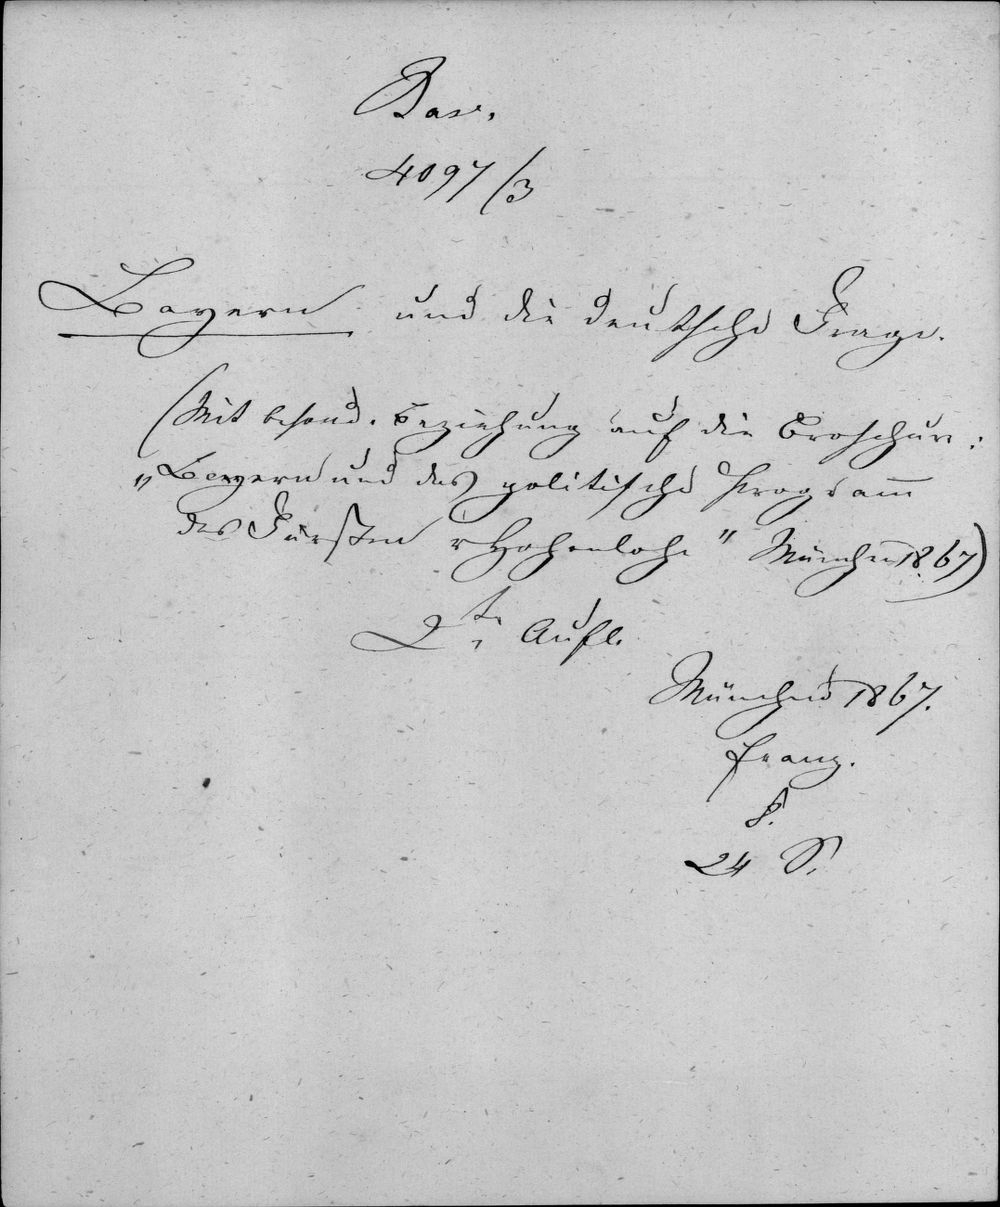 Bav.
4097/3
Bayern und die deutsche Frage.
(Mit besond. Beziehung auf die Broschüre:
„Bayern und das politische Programm
des Fürsten v Hohenlohe" München 1867)
2te Aufl.
München 1867.
Franz.
8.
24 S.